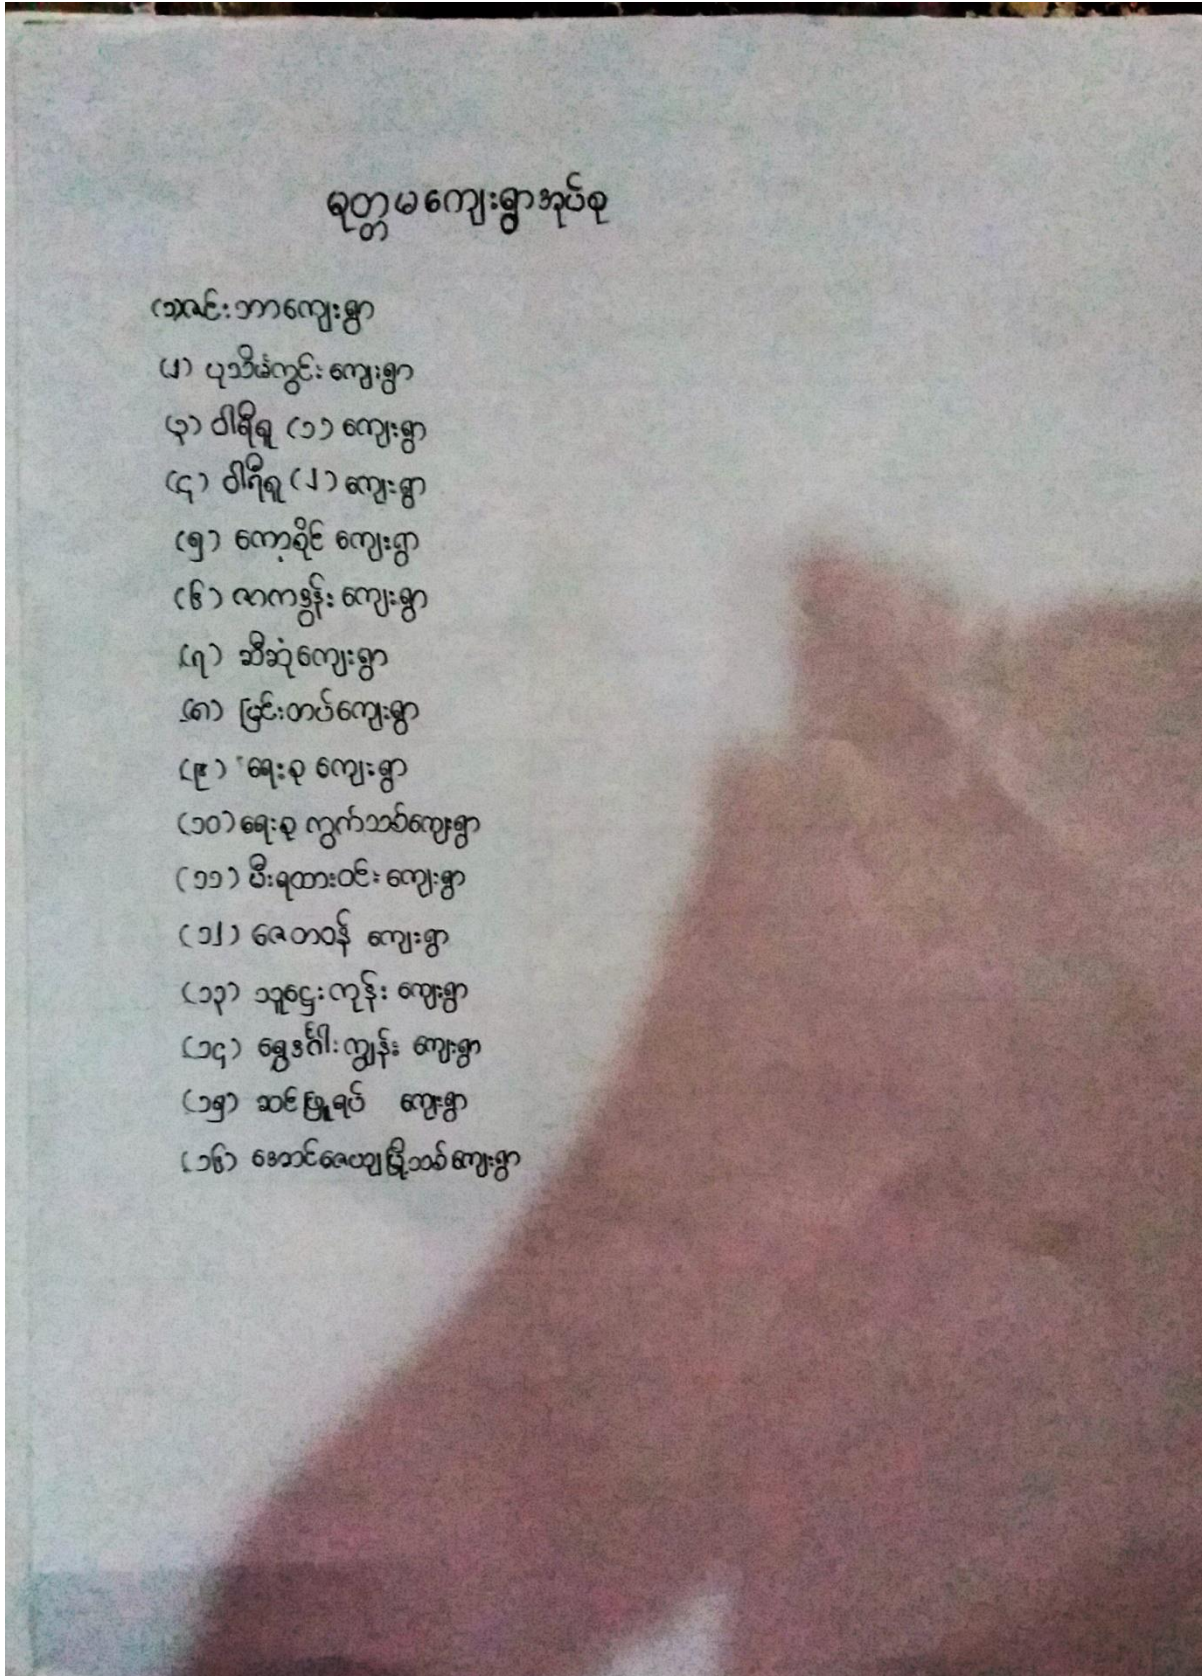 ရုတ္တမကျေးရွာအုပ်စု
(၁)ဇင်းဘာကျေးရွာ
(၂) ပုသိမ်ကွင်းကျေးရွာ
(၃) ဝါရီရူ (၁) ကျေးရွာ
(၄) ဝါရီရူ (၂) ကျေးရွာ
(၅) ကော့စိုင် ကျေးရွာ
(၆) ဇာကဒွန်း ကျေးရွာ
(၇) ဆီဆုံကျေးရွာ
(၈) မြင်းတပ်ကျေးရွာ
(၉) ရေးစု ကျေးရွာ
(၁၀) ရေးစု ကွက်သစ်ကျေးရွာ
(၁၁) မီးရထားဝင်း ကျေးရွာ
(၁၂) ဇေတဝန် ကျေးရွာ
(၁၃) သူဌေးကုန်း ကျေးရွာ
(၁၄) ရွှေဒင်္ဂါးကျွန်း ကျေးရွာ
(၁၅) ဆင်ဖြူရပ် ကျေးရွာ
(၁၆) အောင်ဇေယျမြို့သစ်ကျေးရွာ